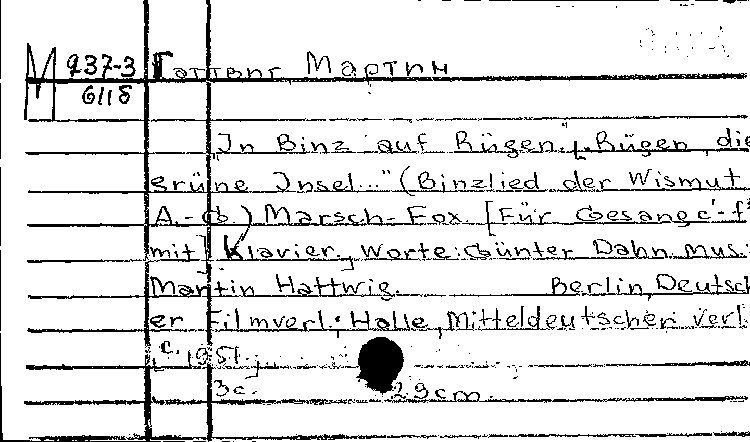 М 237-3 Гаттвиг Мартин
6118
"In Binz auf Rügen". [„Rügen, die
grüne Insel..." (Binzlied der Wismut
A.-G.) Marsch-Fox. [Für Gesang c'-f²
mit] Klavier. Worte: Günter Dahn Mus.:
Martin Hattwig. Berlin, Deutsch
er Filmverl.; Halle, Mitteldeutscher Verl.
[c. 1951.]
3c. 29cm.